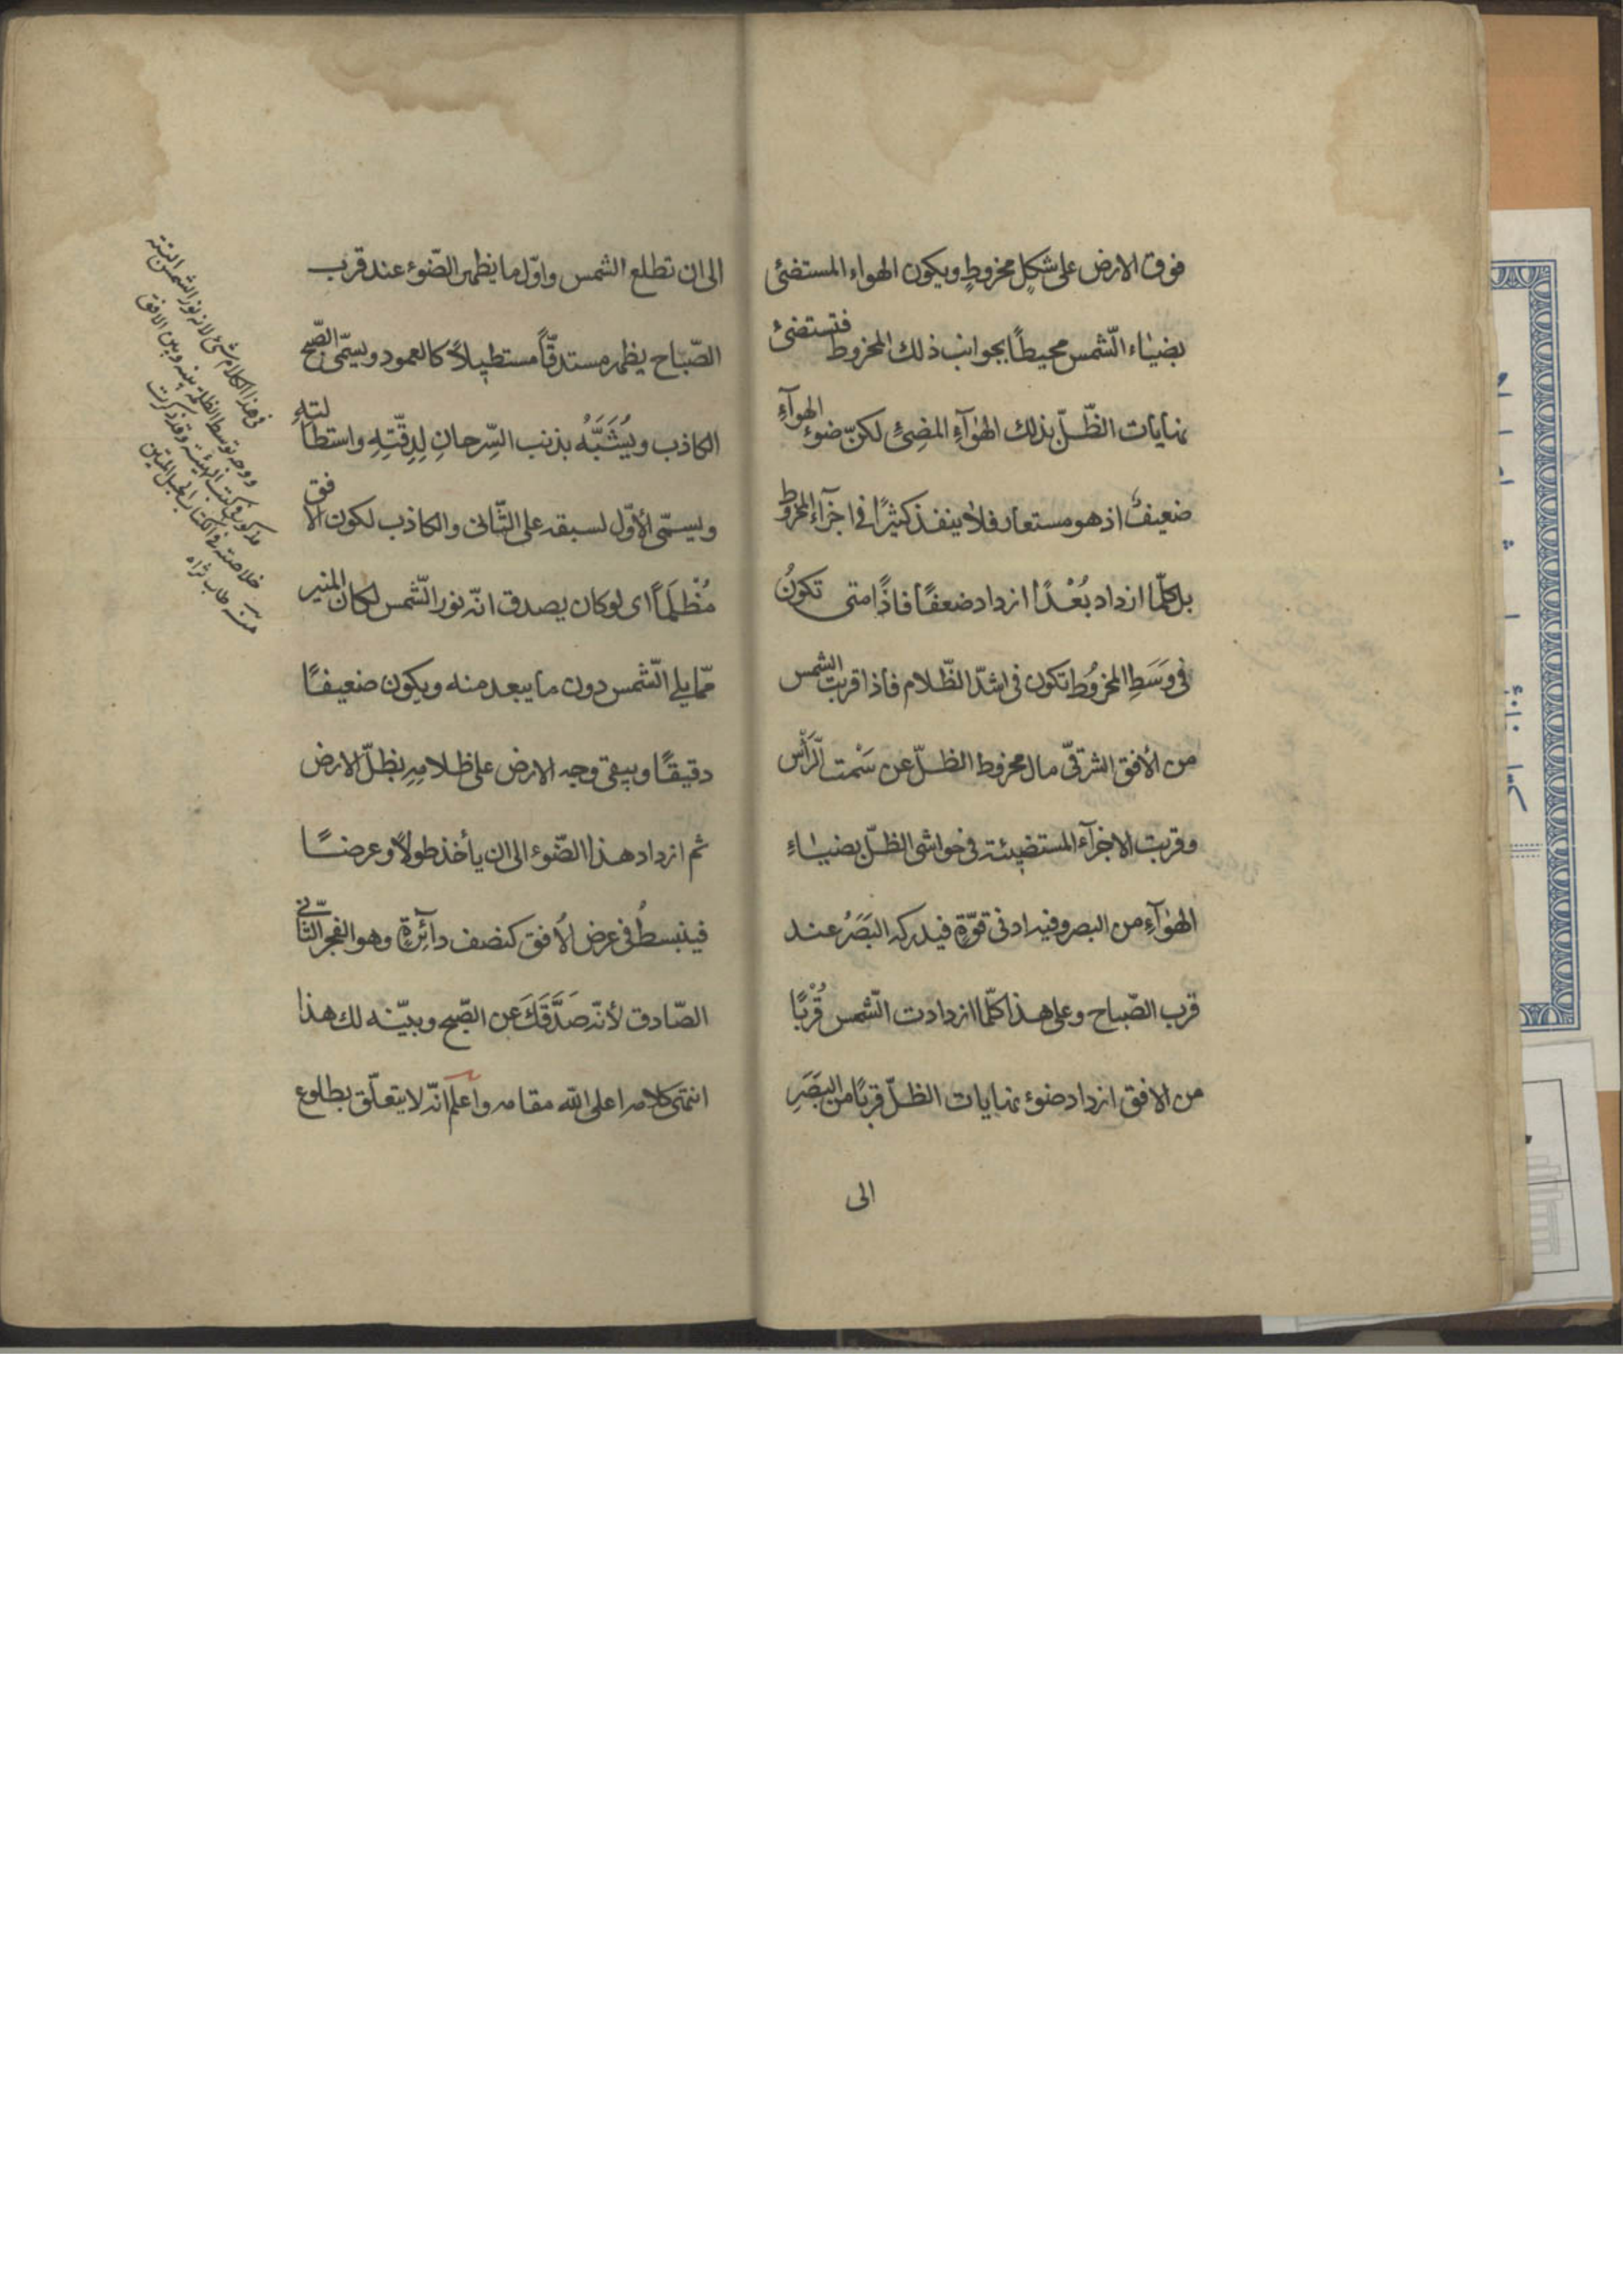 فوق الارض على شكلٍ مخروطٍ ويكون الهواء المستضئ
بضياء الشّمس محيطًا بجوانب ذلك المخروط فتستضئ
نهايات الظّلّ بذلك الهوآءِ المضئِ لكنّ ضوء الهوآءِ
ضعيفٌ اذ هو مستعار فلا ينفذ كثيرًا فى اجزآء المخروط
بل كلّما ازداد بُعْدًا ازداد ضعفًا فاذًا متى تكونُ
فى وَسَطِ المخروُط تكون فى اشدّ الظّلام فاذا قربت الشمس
من الأفق الشرقىّ مال مخروط الظلّ عن سَمْت الرَّأْس
وقربت الاجزآء المستضيئة فى حواشى الظلّ بضياءِ
الهوآءِ من البصر وفيه ادنى قوّةٍ فيدركه البَصَرُ عند
قرب الصّباح وعلى هذا كلّما ازدادت الشّمس قُرْبًا
من الافق ازداد ضوء نهايات الظلّ قربًا من البَصَرِ
الى
الى ان تطلع الشمس واوّل ما يظهر الضّوء عند قرب
الصّباح يظهر مستدقّاً مستطيلاً كالعمود ويسمّى الصّبح
الكاذب ويُشَبَّهُ بذنب السِّرحانِ لِدِقّتِهِ واستطالتهِ
ويسمّى الأوّل لسبقه على الثّانى والكاذب لكون الافق
مُظْلَماً اى لو كان يصدق انّه نور الشّمس لكان المنير
ممّا يلى الشّمس دون ما يبعد منه ويكون ضعيفًا
دقيقًا ويبقى وجه الارض على ظلامِهِ بظلّ الارض
ثم ازداد هذا الضّوء الى ان يأخذ طولاً وعرضًا
فينبسطُ فى عرض الأفق كنصف دآئرةٍ وهو الفجر الثّانى
الصّادق لأنّه صَدَّقَكَ عن الصّبح وبيّنه لك هذا
انتهى كلامه اعلى الله مقامه واعلم انّه لا يتعلّق بطلوع
فى هذا الكلام شئ لانه نور الشمس البتة
ووجه توسط الظلمة بينه وبين الافق
مذكور فى كتب الهيئة وقد ذكرت
خلاصته فى الكتاب الحبل المتين
منه طاب ثراه